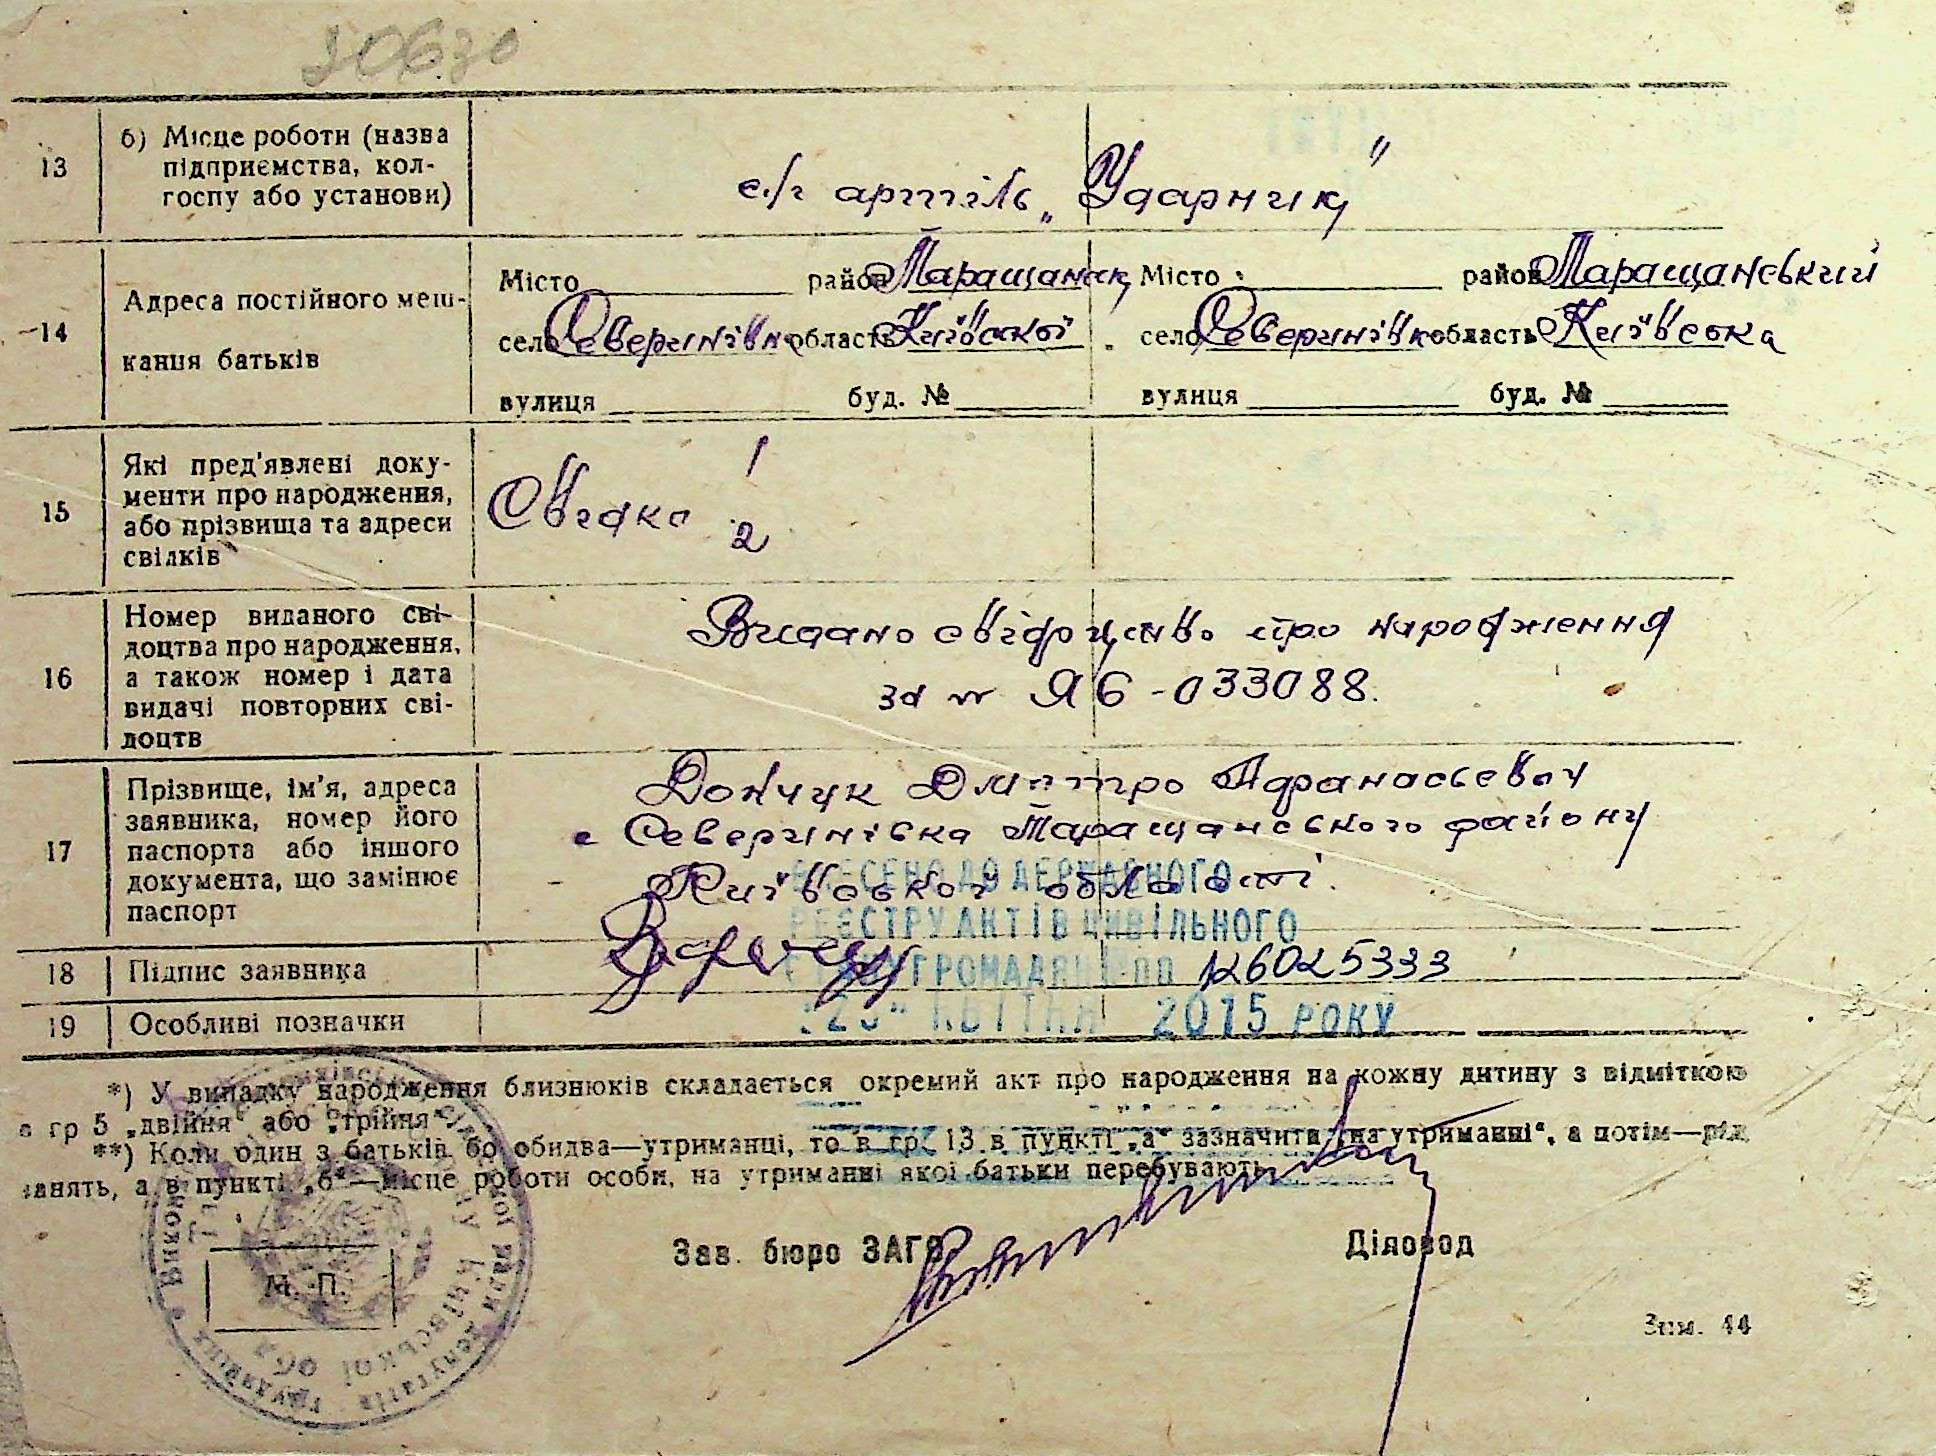 20630
13
б) Місце роботи (назва
підприємства, кол-
госпу або установи)
с./г артіль „Ударник"
14
Адреса постійного меш-
кання батьків
Місто район Таращанськ
село Северинівка область Київської
вулиця буд. №
Місто район Таращанський
село Северинівка область Київська
вулиця буд. №
15
Які пред'явлені доку-
менти про народження,
або прізвища та адреси
свідків
Свідки 1
2
16
Номер виданого сві-
доцтва про народження,
а також номер і дата
видачі повторних сві-
доцтв
Видано свідоцтво про народження
за № ЯБ-033088.
17
Прізвище, ім'я, адреса
заявника, номер його
паспорта або іншого
документа, що замінює
паспорт
Дмитро Афанасьевич
с Северинівка Таращанського району
Київської області.
ВНЕСЕНО ДО ДЕРЖАВНОГО
РЕЄСТРУ АКТІВ ЦИВІЛЬНОГО
СТАНУ ГРОМАДЯН 126025333
КВІТНЯ 2015 РОКУ
18
Підпис заявника
19
Особливі позначки
*) У випадку народження близнюків складається окремий акт про народження на кожну дитину з відміткою
в гр 5 „двійня" або „трійня"
**) Коли один з батьків бо обидва—утриманці, то в гр. 13 в пункті „а" зазначити „на утриманні", а потім—рід
занять, а в пункті „б"—місце роботи особи, на утриманні якої батьки перебувають
Зав. бюро ЗАГС
Діловод
М. П.
Київської обл
трудящих
Зам. 44